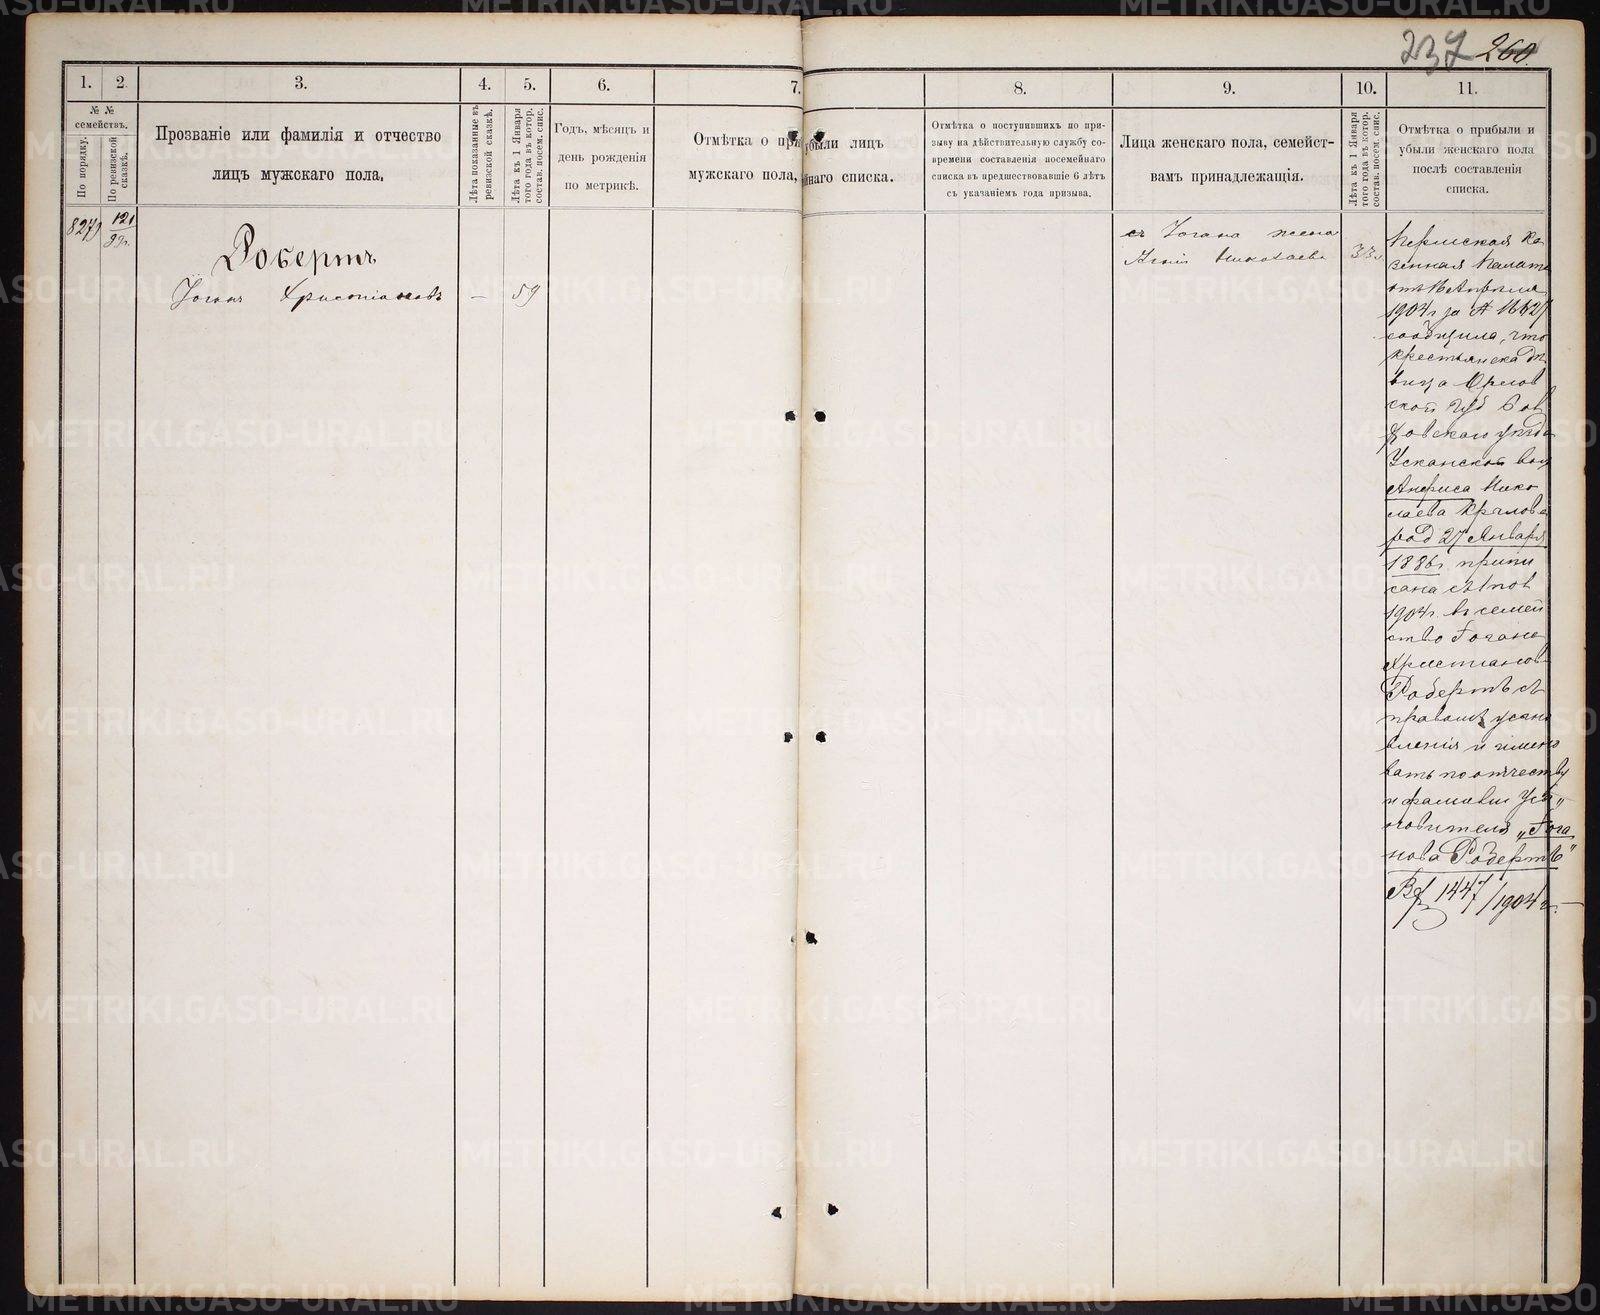 237 260.
1. 2. 3. 4. 5. 6. 7. 8. 9. 10. 11.
№ № семействъ.
По порядку.
По ревизской сказкѣ.
Прозваніе или фамилія и отчество
лицъ мужскаго пола.
Лѣта показанные въ
ревизской сказкѣ.
Лѣта къ 1 Января
того года въ котор.
состав. посем. спис.
Годъ, мѣсяцъ и
день рожденія
по метрикѣ.
Отмѣтка о прибыли лицъ
мужскаго пола, наго списка.
Отмѣтка о поступившихъ по при-
зыву на дѣйствительную службу со-
времени составленія посемейнаго
списка въ предшествовавшіе 6 лѣтъ
съ указаніемъ года призыва.
Лица женскаго пола, семейст-
вамъ принадлежащія.
Лѣта къ 1 Января
того года въ котор.
состав. посем. спис.
Отмѣтка о прибыли и
убыли женскаго пола
послѣ составленія
списка.
827
121
Робертъ
Іоганъ Христіановъ — 59
Іогана жена
Николаева 33
Пермская Ка
зенная Палата
1904 г за №
сообщила, что
крестьянска дѣ
вица Орлов
ской губ
уѣзда
вол
Анфиса Нико
лаева Крылова
род 27 Января
1886 г припи
сана съ 1 пол
1904 г. въ семей
ство Іогана
Христіанов
Робертъ съ
правомъ усыно
вленія и имено
вать по отчеству
и фамиліи Усы„
новителя „Іога
нова Робертъ"
1447/1904 г. —
METRIKI.GASO-URAL.RU